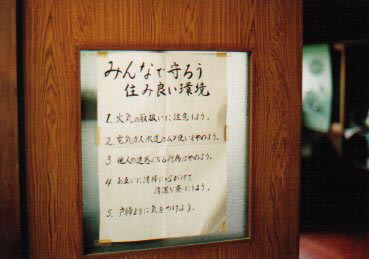 みんなで守ろう
住み良い環境
1. 火気の取扱いに注意しよう。
2. 電気ガス水道のムダ使いをやめよう。
3. 他人の迷惑になる行為はやめよう。
4. お互いに清掃に心がけて
清潔な寮にしよう。
5. 戸締まりに気をつけよう。